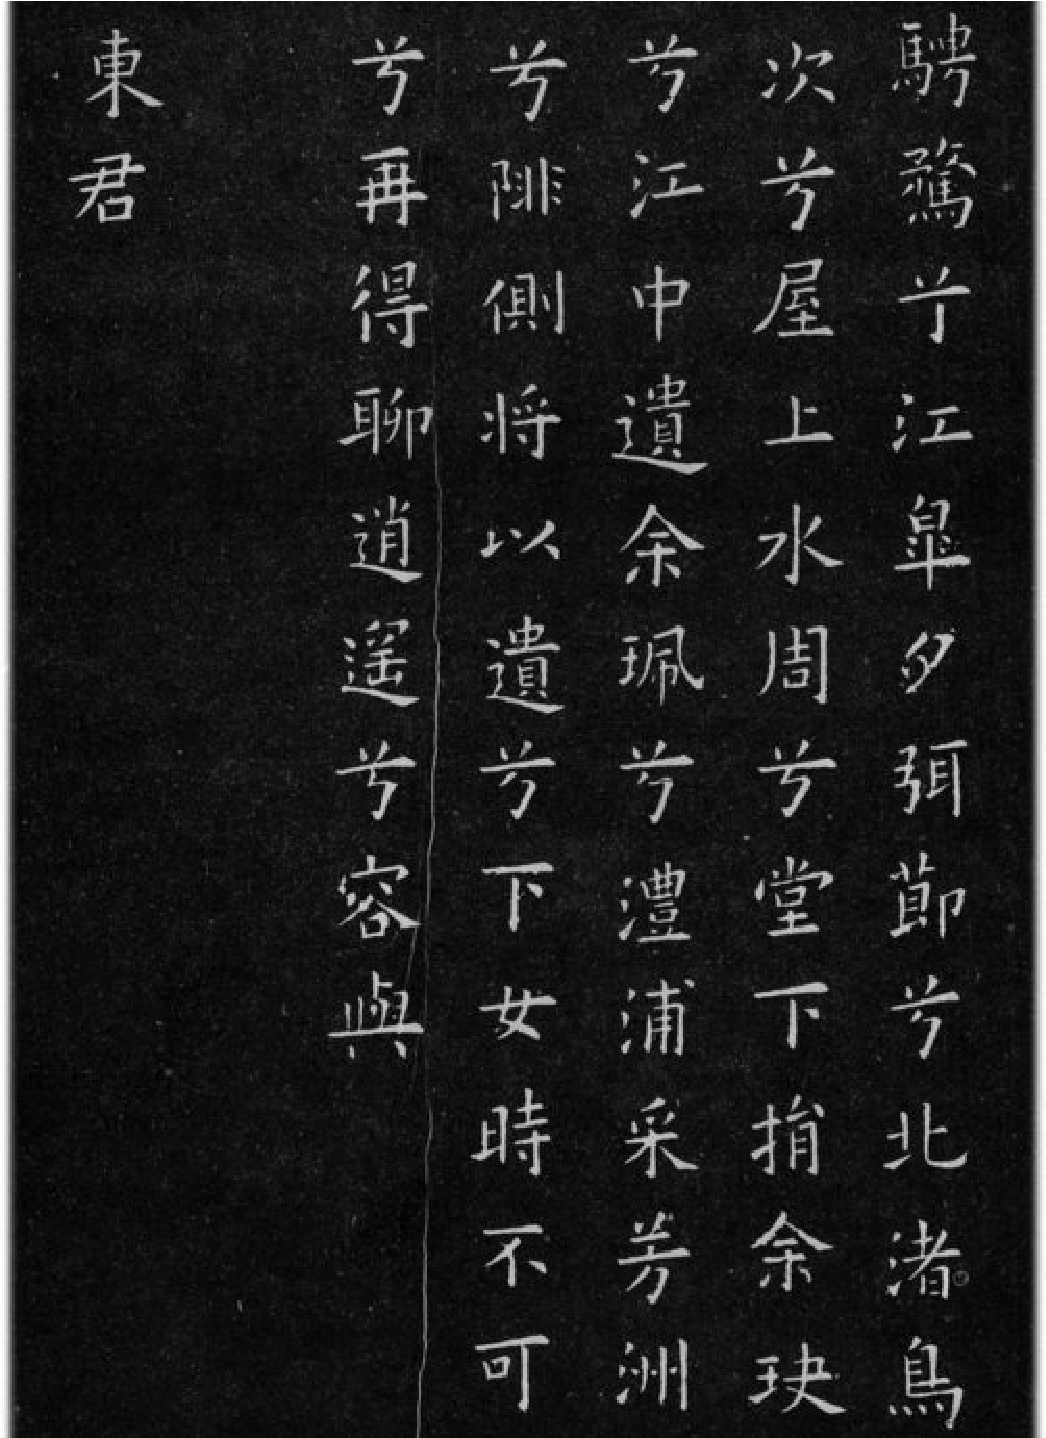 騁騖兮江皋夕弭節兮北渚鳥
次兮屋上水周兮堂下捐余玦
兮江中遺余珮兮澧浦采芳洲
兮陫側將以遺兮下女時不可
兮再得聊逍遥兮容與
東君